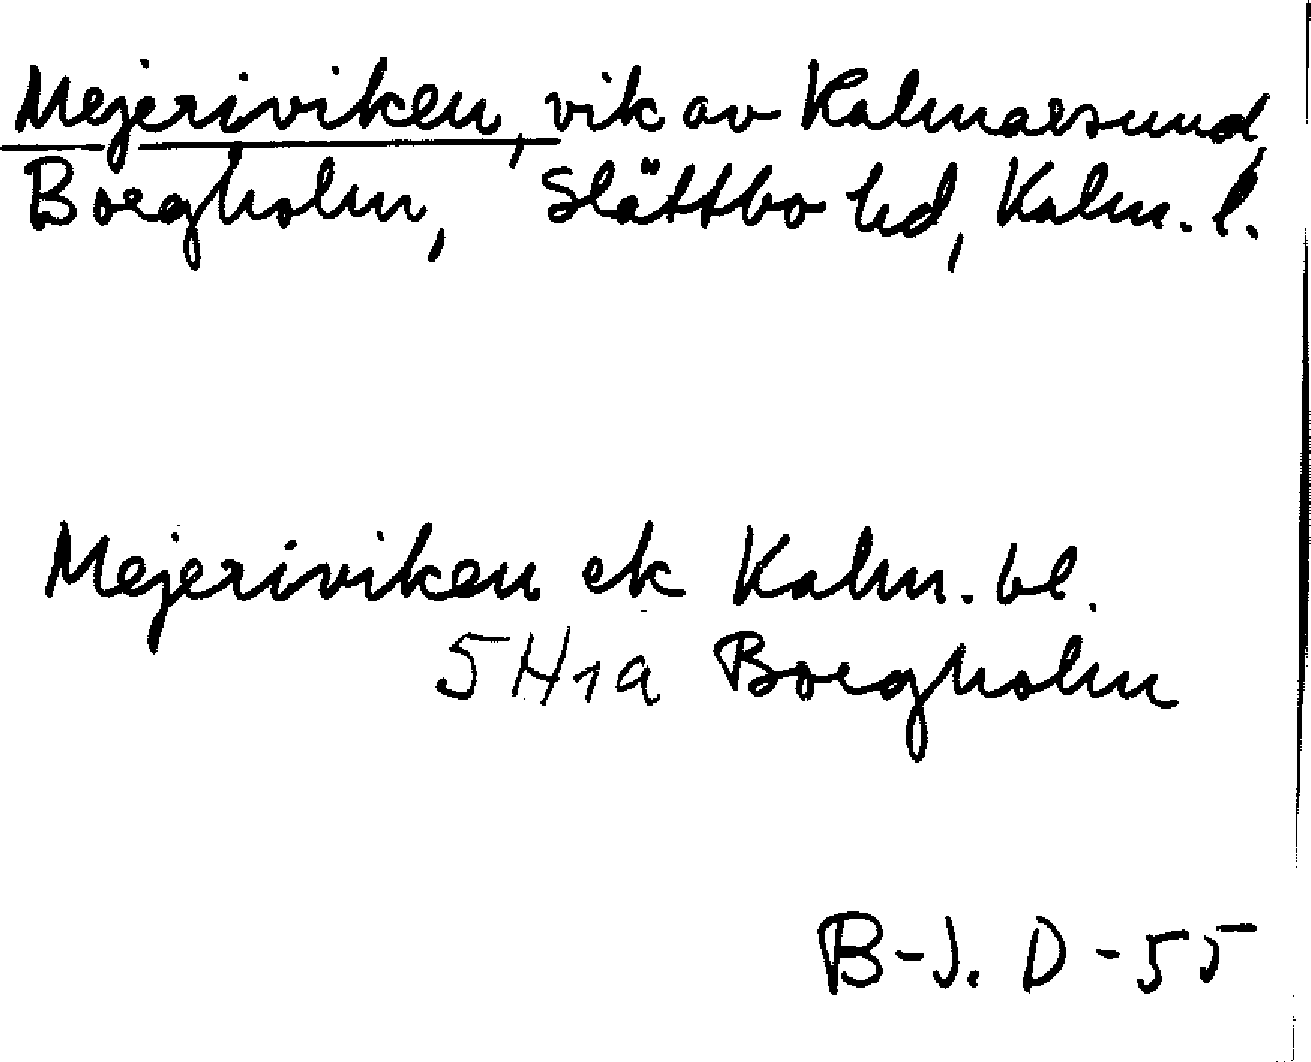 Mejeriviken, vik av Kalmarsund,
Borgholm, Slättbo hd, Kalm. l.
Mejeriviken ek Kalm. bl.
5H1a Borgholm
B-J. D-55